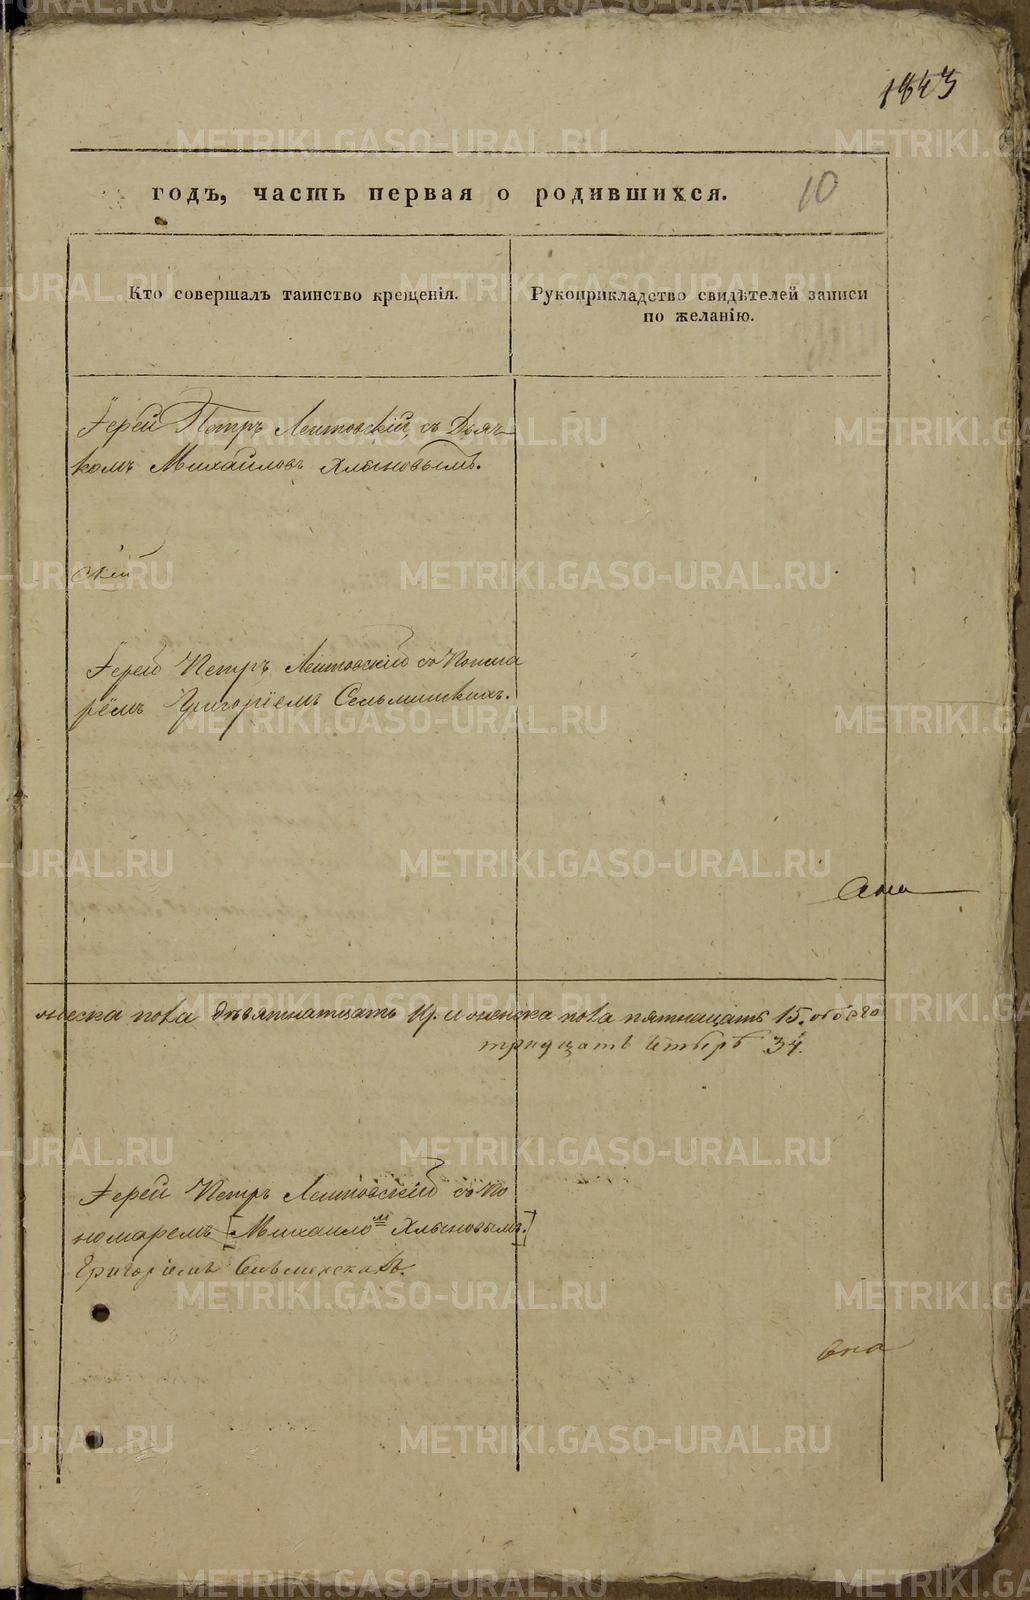 1843
годъ, часть первая о родившихся.
10
Кто совершалъ таинство крещенія.
Рукоприкладство свидѣтелей записи
по желанію.
Іерей Петръ Лентовскій, съ Дьяч-
комъ Михаиловъ Хлыновымъ.
ской
Іерей Петръ Лентовскій со Понома
рёмъ Григоріемъ Сельминскихъ.
пола дѣвятнатцать 19. и женска пола пятнацать 15. обоего
тридцать четыре 34.
Іерей Петръ Лентовскій со По
номаремъ [Михаиломъ Хлыновымъ.]
Григоріемъ
METRIKI.GASO-URAL.RU